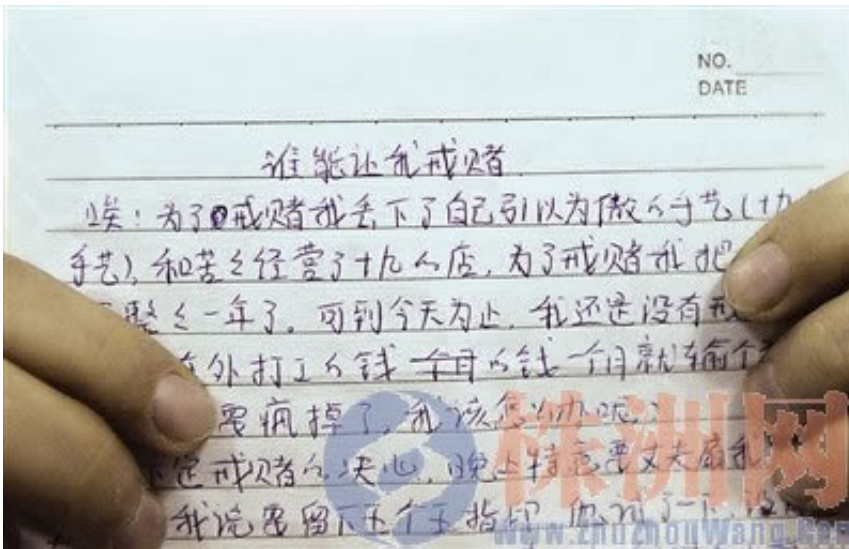 NO.
DATE
谁能让我戒赌
唉！为了戒赌我丢下了自己引以为傲的手艺（十九
手艺），和苦々经营了十九的店，为了戒赌我把
整々一年了。可到今天为止，我还是没有戒
外打工的钱 个月的钱一个月就输个
要疯掉了，我该怎么办呢？
定戒赌的决心，晚上特意要丈夫扇我
我说要留下五个手指印，他
株洲网
www.zhuzhouWang.com